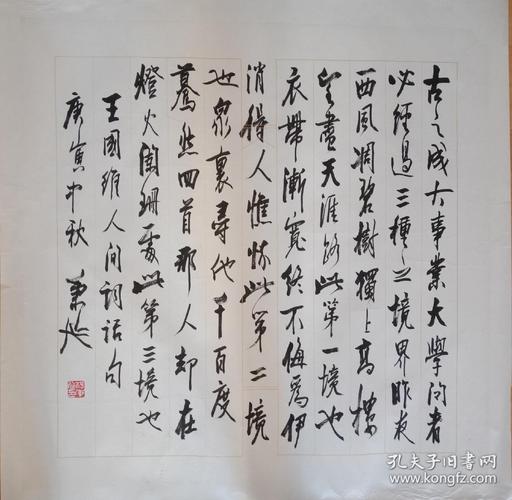 古之成大事業大學问者
必經過三種之境界昨夜
西風凋碧樹獨上高樓
望盡天涯路此第一境也
衣帶漸寬終不悔為伊
消得人憔悴此第二境
也眾裏尋他千百度
驀然回首那人却在
燈火闌珊處此第三境也
王國維人间詞话句
庚寅中秋
孔夫子旧书网
www.kongfz.com